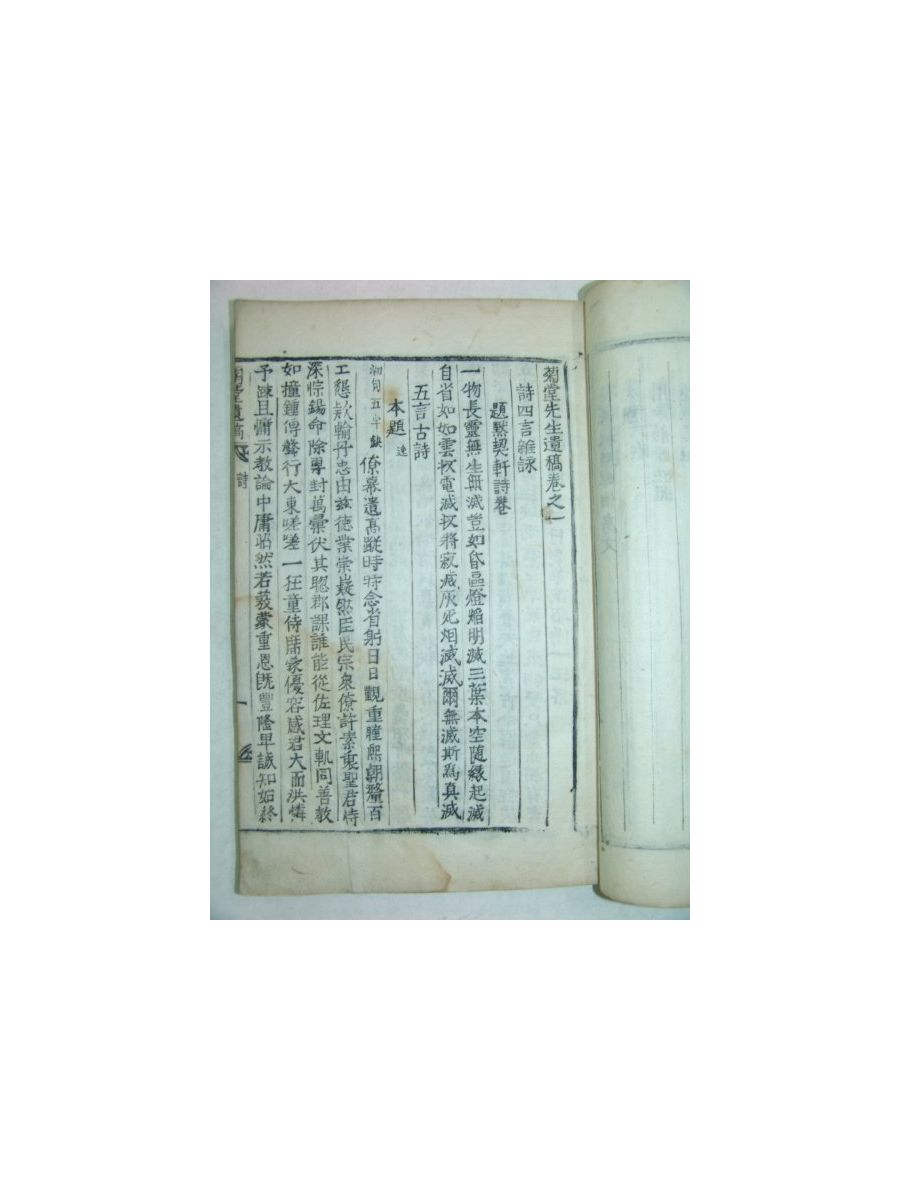 菊堂先生遺稿卷之一
詩四言雜詠
題默契軒詩卷
一物長靈無生無滅豈如昏區燈熖明滅三葉本空隨緣起滅
自省如如雲収電滅収將寂滅灰死烟滅滅爾無滅斯為真滅
五言古詩
本題 逹
初句五字缺 僚幕遺高蹤時特念省躬日日觀重瞳熙朝釐百
工懇欵輸丹忠由玆徳業崇嶷然臣民宗衆僚許素衷聖君恃
深悰錫命除專封萬彙伏其聦郡課誰能從佐理文軌同善教
如撞鍾傳聲行大東嗟嗟一狂童侍席家優容感君大而洪憐
予踈且慵示教論中庸昭然若發蒙重恩旣豐隆早誠知始終
菊堂遺稿 詩 一